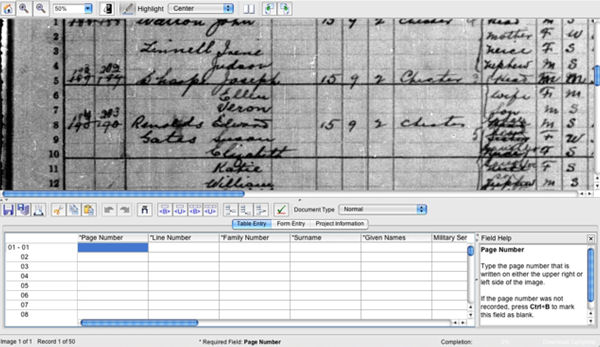 50% Highlight Center
Warren John 15 9 2 Chester Head m S
2 mother F W
3 Linnell Irene niece F S
4 Judson nephew m S
5 Sharpe Joseph 15 9 2 Chester Head m m
6 Ellen wife F m
7 Veron Son m S
8 Edward 15 9 2 Chester m S
9 Gates Susan F W
10 Elizabeth F S
11 Katie F S
12 William m S
<B> <U> <B> <U> Document Type Normal
Table Entry Form Entry Project Information
*Page Number *Line Number *Family Number *Surname *Given Names Military Ser
01 - 01
02
03
04
05
06
07
08
Field Help
Page Number
Type the page number that is
written on either the upper right or
left side of the image.
If the page number was not
recorded, press Ctrl+B to mark
this field as blank.
Image 1 of 1 Record 1 of 50 * Required Field: Page Number Completion: 0% Download Complete